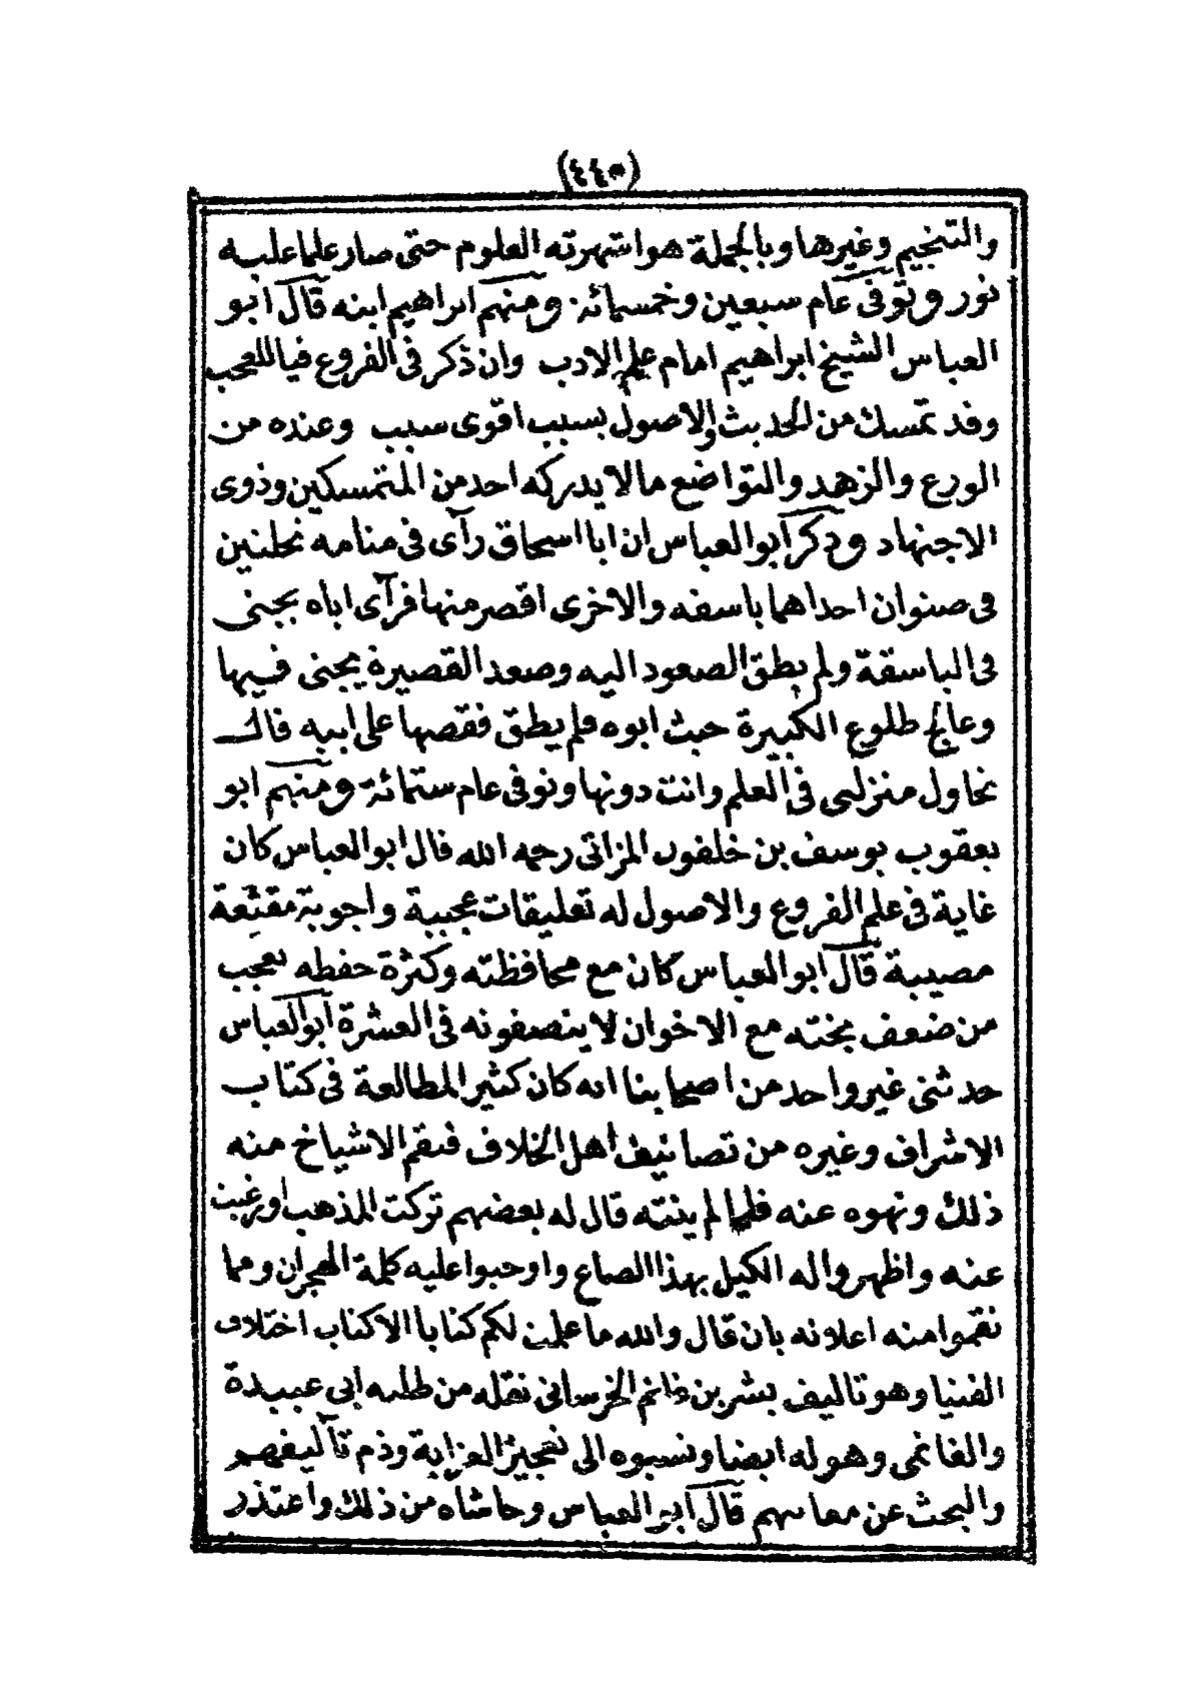 (٤٤٠)
والتنجيم وغيرها وبالجملة هو اشتهرته العلوم حتى صار علما عليه
نور وتوفى عام سبعين وخمسمائة ومنهم ابراهيم ابنه قال ابو
العباس الشيخ ابراهيم امام علم الادب وان ذكر فى الفروع فيا للعجب
وقد تمسك من الحديث والاصول بسبب اقوى سبب وعنده من
الورع والزهد والتواضع ما لا يدركه احد من المتمسكين وذوى
الاجتهاد وذكر ابو العباس ان ابا اسحاق رآى فى منامه نخلتين
فى صنوان احداهما باسقه والاخرى اقصر منها فرآى اباه يجنى
فى الباسقة ولم يطق الصعود اليه وصعد القصيرة يجنى فيها
وعالج طلوع الكبيرة حيث ابوه فلم يطق فقصها على ابيه قال
تحاول منزلتى فى العلم وانت دونها وتوفى عام ستمائة ومنهم ابو
يعقوب يوسف بن خلفون المزاتى رحمه الله قال ابو العباس كان
غاية فى علم الفروع والاصول له تعليقات عجيبة واجوبة مقنعة
مصيبة قال ابو العباس كان مع محافظته وكثرة حفظه تعجب
من ضعف بخته مع الاخوان لا ينصفونه فى العشرة ابو العباس
حدثنى غير واحد من اصحابنا انه كان كثير المطالعة فى كتاب
الاشراف وغيره من تصانيف اهل الخلاف فنقم الاشياخ منه
ذلك ونهوه عنه فلما لم ينته قال له بعضهم تركت المذهب او رغبت
عنه واظهروا له الكيل بهذا الصاع واوجبوا عليه كلمة الهجران ومما
نقموا منه اعلانه بان قال والله ما علمت لكم كتابا الا كتاب اختلاف
الفتيا وهو تاليف بشر بن غانم الخرسانى نقله من طلبه ابى عبيدة
والغانمى وهو له ايضا ونسبوه الى تعجيز العزابة وذم تآليفهم
والبحث عن معايبهم قال ابو العباس وحاشاه من ذلك واعتذر